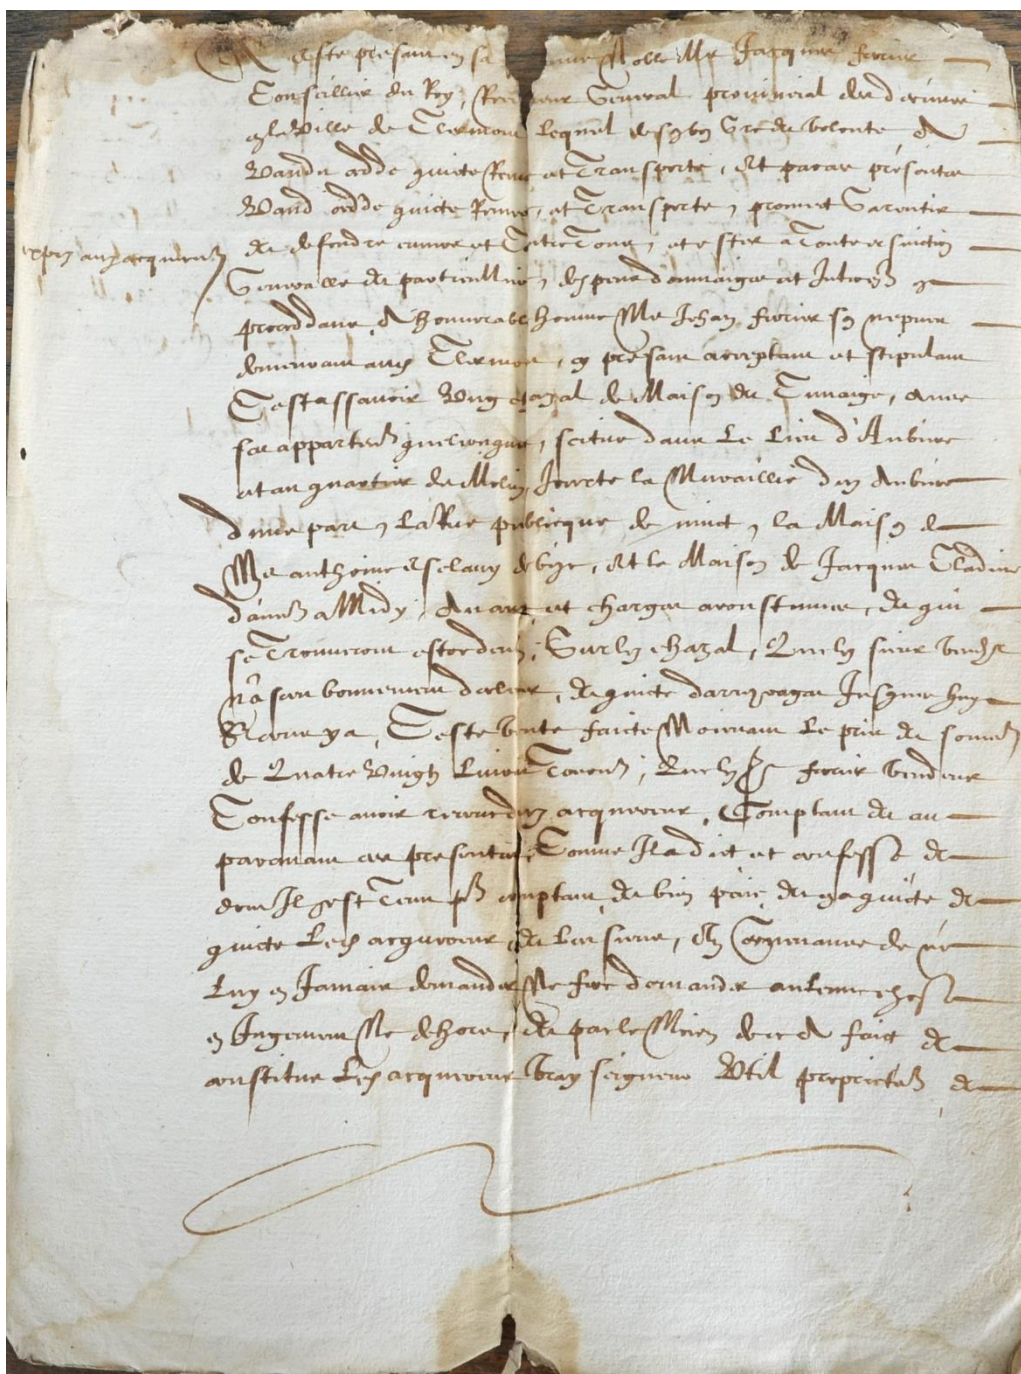 A este presant en sa Noble Me Jacques ferrier
Conseillier du Roy, Receveur General provincial des decimes
en la Ville de Clermont Lequel de son bon Gré et volonte A
Vandu cedde quicte Remis et Transporte, Et par ces presentes
Vand cedde quicte Remet, et Transporte, promet Garentir
et defendre envers et Contre Tous, et ester a Toute eviction
expn aux acquereurs
Generalle et particulliere, despens dommaiges et Interestz
procedans, A honnorable homme Me Jehan ferrier son nepveu
demeurant aud Clermont, en presant acceptant et stipulant
C'est assavoir Ung chazal de Maison et avec
ses appartenances quelconques, scitue dans Le Lieu d'Aubiere
et au quartier du Molin, Jouxte la Muraillie dud Aubiere
d'une part, La Rue publicque de nuict, la Maison de
Me anthoine et le Maison de Jacques
a Midy, Avec et charges acoustumes, et qui
se Trouveront estre deuz, Sur led chazal, Que led sieur vendeur
n'a sceu bonnement declerer, et quicte d'arreyrages Jusques huy
Ceste vente faicte Moienant Le pris et somme
de Quatre Vingtz Livres Tournois, Que led Sr ferrier vendeur
Confesse avoir receu dud acquereur, Comptant et au
paravant ces presentes, Comme Il a dict et confesse et
dont Il s'est Tenu pour comptant et bien paié, et en a quicte et
quicte Led acquereur et Les siens, En Convenance de ne
Luy en Jamais demander Ne fere demander aulcune chose
en Jugement Ne dehors, et par le Moien de ce A faict et
constitue Led acquereur vray seigneur Util proprietere et